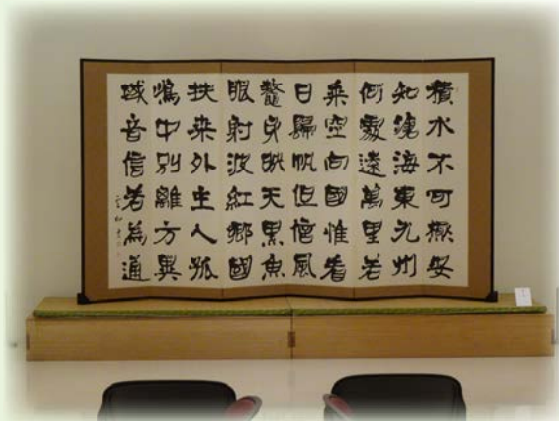 積水不可極安
知滄海東九州
何處遠萬里若
乘空向國惟看
日歸帆但信風
鰲身映天黑魚
眼射波紅鄉國
扶桒外主人孤
嶋中別離方異
域音信若為通